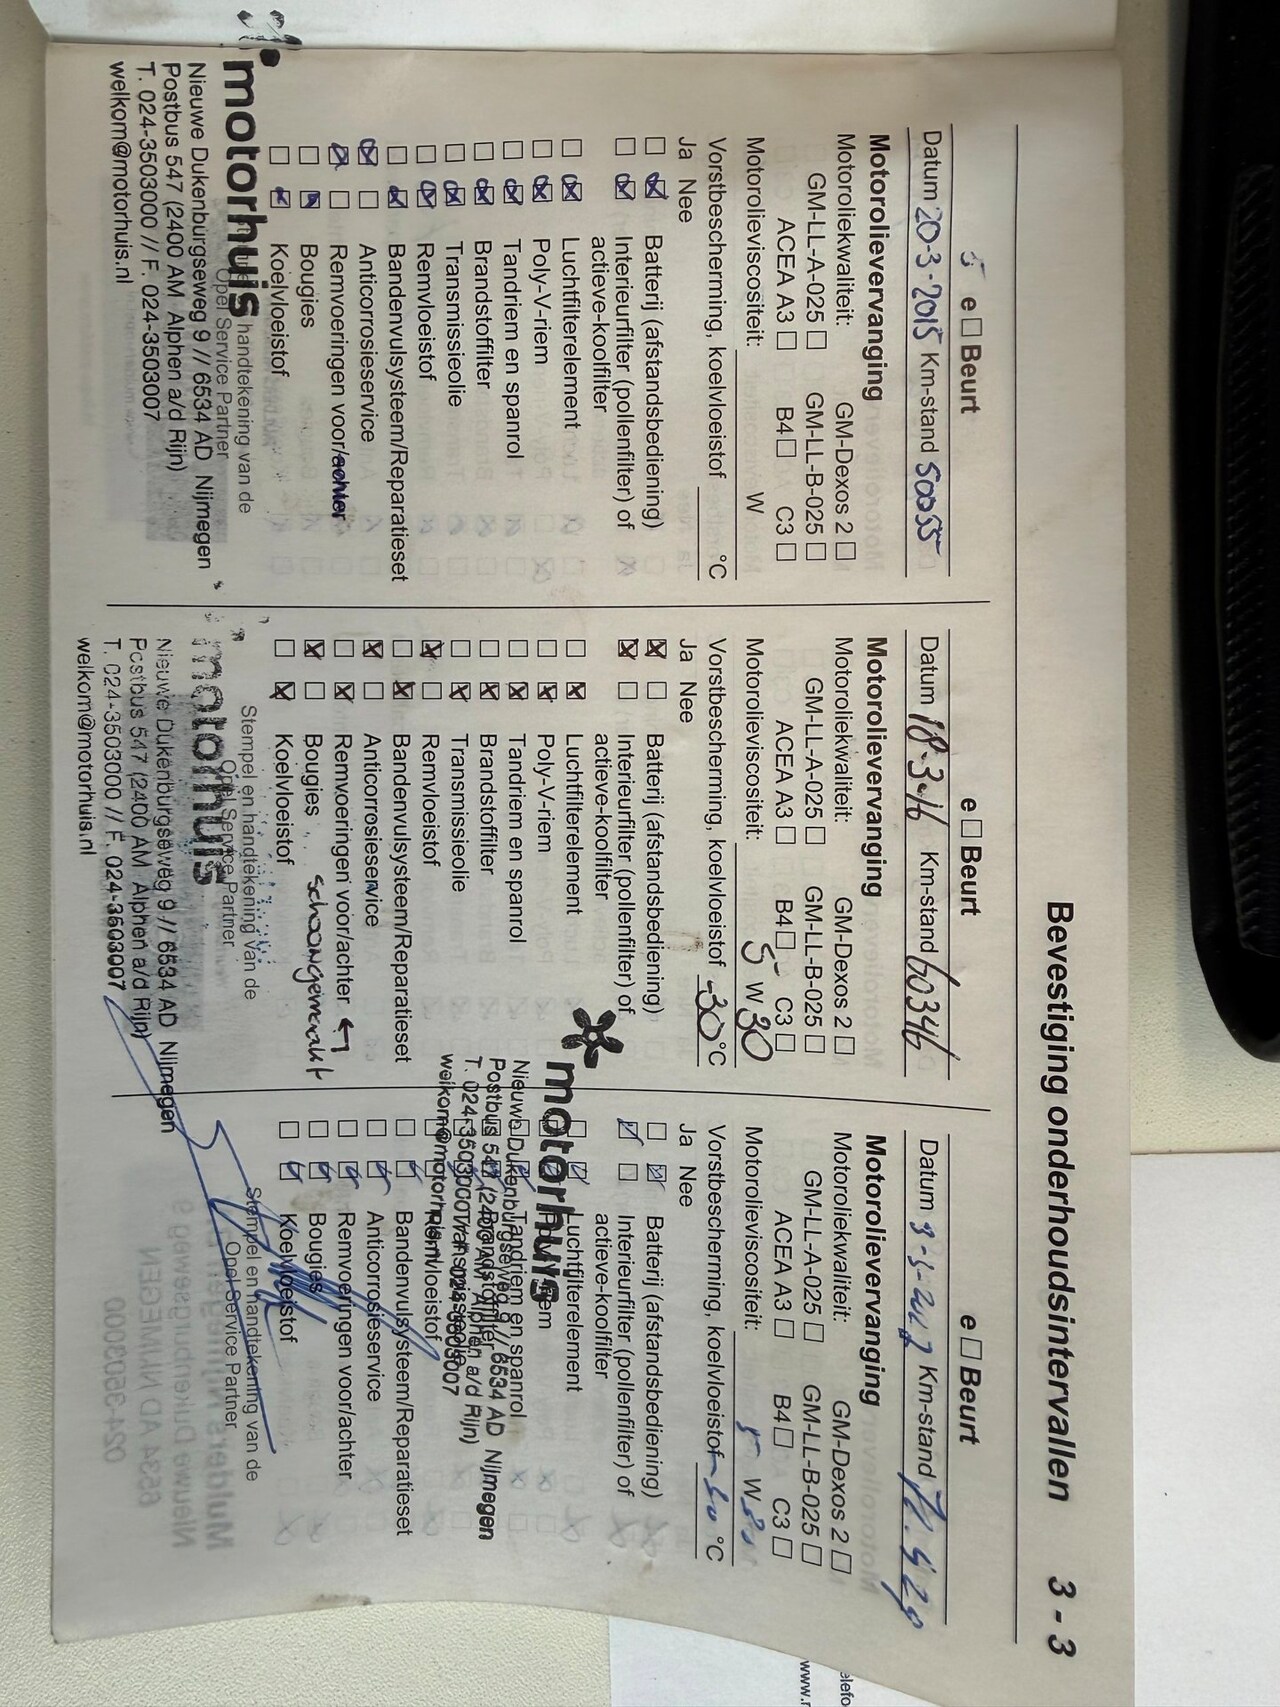 Bevestiging onderhoudsintervallen 3 - 3
5 e Beurt
Datum 20-3-2015 Km-stand 50055
Motorolievervanging
Motoroliekwaliteit: GM-Dexos 2
GM-LL-A-025 GM-LL-B-025
ACEA A3 B4 C3
Motorolieviscositeit: W
Vorstbescherming, koelvloeistof °C
Ja Nee
Batterij (afstandsbediening)
Interieurfilter (pollenfilter) of
actieve-koolfilter
Luchtfilterelement
Poly-V-riem
Tandriem en spanrol
Brandstoffilter
Transmissieolie
Remvloeistof
Bandenvulsysteem/Reparatieset
Anticorrosieservice
Remvoeringen voor/achter
Bougies
Koelvloeistof
handtekening van de
Opel Service Partner
motorhuis
Nieuwe Dukenburgseweg 9 // 6534 AD Nijmegen
Postbus 547 (2400 AM Alphen a/d Rijn)
T. 024-3503000 // F. 024-3503007
welkom@motorhuis.nl
e Beurt
Datum 18-3-16 Km-stand 60346
Motorolievervanging
Motoroliekwaliteit: GM-Dexos 2
GM-LL-A-025 GM-LL-B-025
ACEA A3 B4 C3
Motorolieviscositeit: 5 W 30
Vorstbescherming, koelvloeistof -30 °C
Ja Nee
Batterij (afstandsbediening)
Interieurfilter (pollenfilter) of
actieve-koolfilter
Luchtfilterelement
Poly-V-riem
Tandriem en spanrol
Brandstoffilter
Transmissieolie
Remvloeistof
Bandenvulsysteem/Reparatieset
Anticorrosieservice
Remvoeringen voor/achter
Bougies schoongemaakt
Koelvloeistof
Stempel en handtekening van de
Opel Service Partner
motorhuis
Nieuwe Dukenburgseweg 9 // 6534 AD Nijmegen
Postbus 547 (2400 AM Alphen a/d Rijn)
T. 024-3503000 // F. 024-3503007
welkom@motorhuis.nl
e Beurt
Datum Km-stand
Motorolievervanging
Motoroliekwaliteit: GM-Dexos 2
GM-LL-A-025 GM-LL-B-025
ACEA A3 B4 C3
Motorolieviscositeit: 5 W
Vorstbescherming, koelvloeistof °C
Ja Nee
Batterij (afstandsbediening)
Interieurfilter (pollenfilter) of
actieve-koolfilter
Luchtfilterelement
motorhuis
Tandriem en spanrol
Nieuwe Dukenburgseweg 9 // 6534 AD Nijmegen
Brandstoffilter
Postbus 547 (2400 AM Alphen a/d Rijn)
Transmissieolie
T. 024-3503000 // F. 024-3503007
Remvloeistof
welkom@motorhuis.nl
Bandenvulsysteem/Reparatieset
Anticorrosieservice
Remvoeringen voor/achter
Bougies
Koelvloeistof
Stempel en handtekening van de
Opel Service Partner